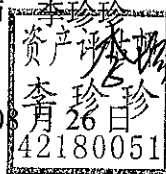 李珍珍
资产评估师
李珍珍
8月26日
42180051